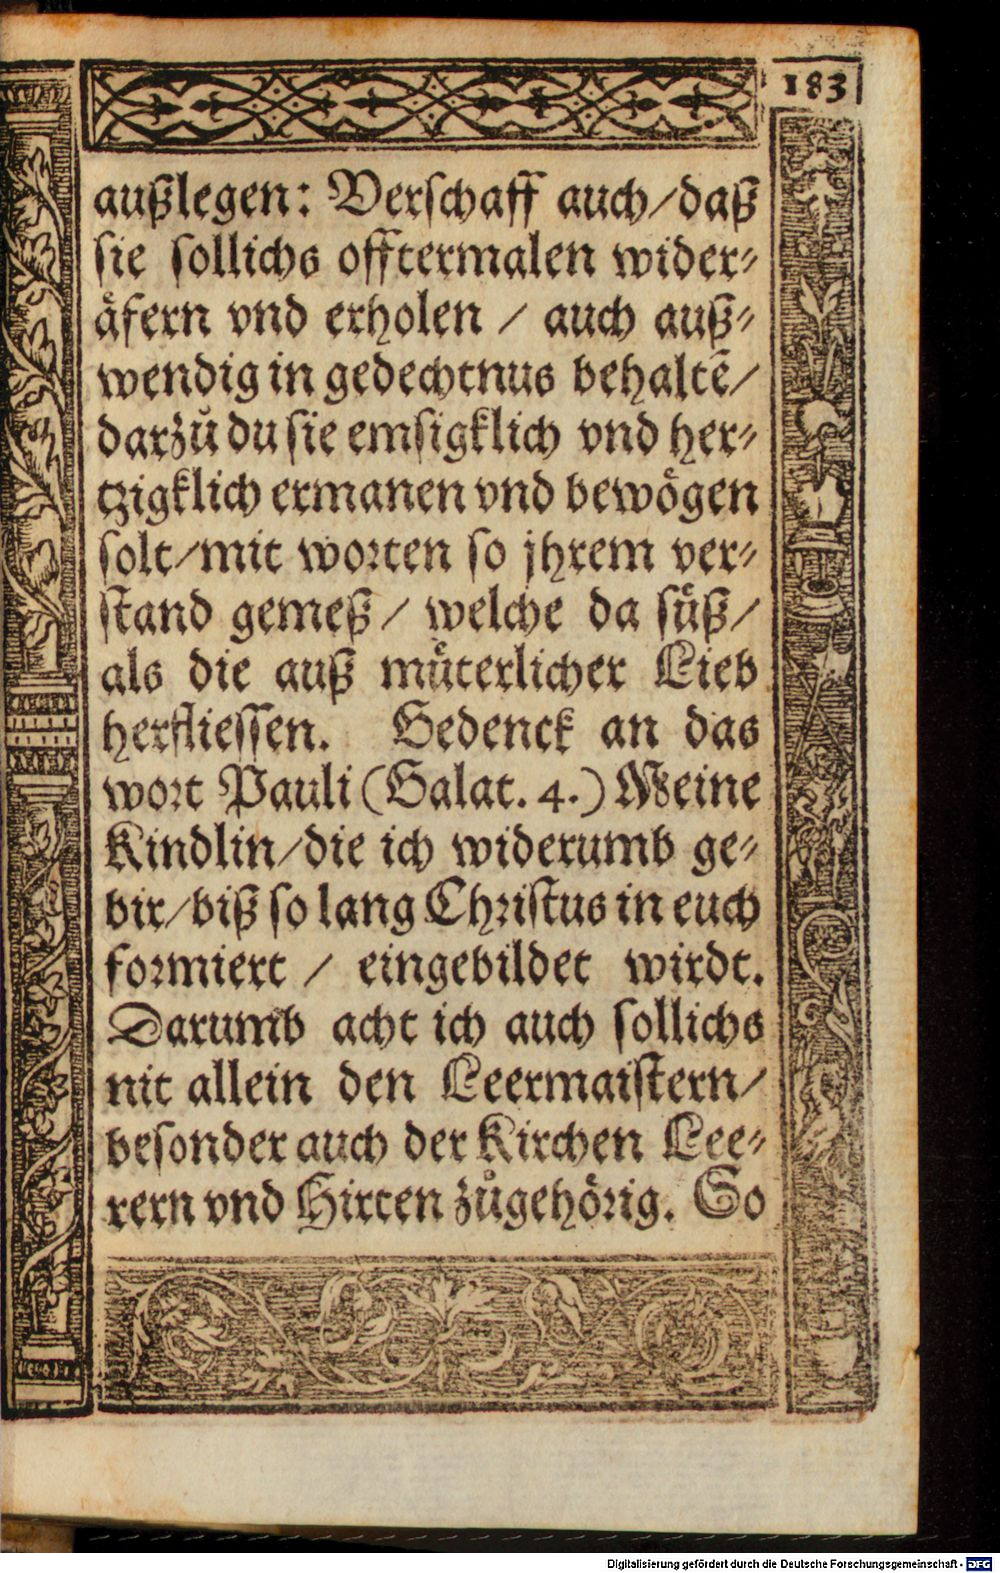 183
außlegen: Verschaff auch/daß
sie sollichs offtermalen wider⸗
aͤfern vnd erholen / auch auß⸗
wendig in gedechtnus behaltē/
darzuͦ du sie emsigklich vnd her⸗
tzigklich ermanen vnd bewoͤgen
solt/mit worten so jhrem ver⸗
stand gemeß/ welche da suͤß/
als die auß muͤterlicher Lieb
herfliessen. Gedenck an das
wort Pauli (Galat. 4.) Meine
Kindlin/die ich widerumb ge⸗
bir/biß so lang Christus in euch
formiert / eingebildet wirdt.
Darumb acht ich auch sollichs
nit allein den Leermaistern/
besonder auch der Kirchen Lee⸗
rern vnd Hirten zuͦgehoͤrig. So
Digitalisierung gefördert durch die Deutsche Forschungsgemeinschaft - DFG